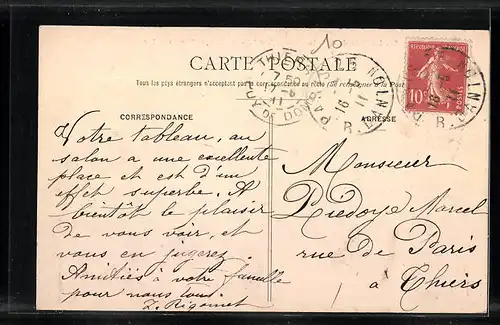 10
CARTE POSTALE
Tous les pays étrangers n'acceptent pas la correspondance au recto (Se renseigner à la Poste)
CORRESPONDANCE
ADRESSE
THIERS
PUY-DE-DOME
11
PARIS
R
REPUBLIQUE FRANCAISE
10c
16
11
R.
Votre tableau, au
salon a une excellente
place et est d'un
effet superbe. A
bientôt le plaisir
de vous voir, et
vous en jugerez.
Amitiés à votre famille
pour nous tous.
Monsieur
Predoye Marcel
rue de Paris
à Thiers